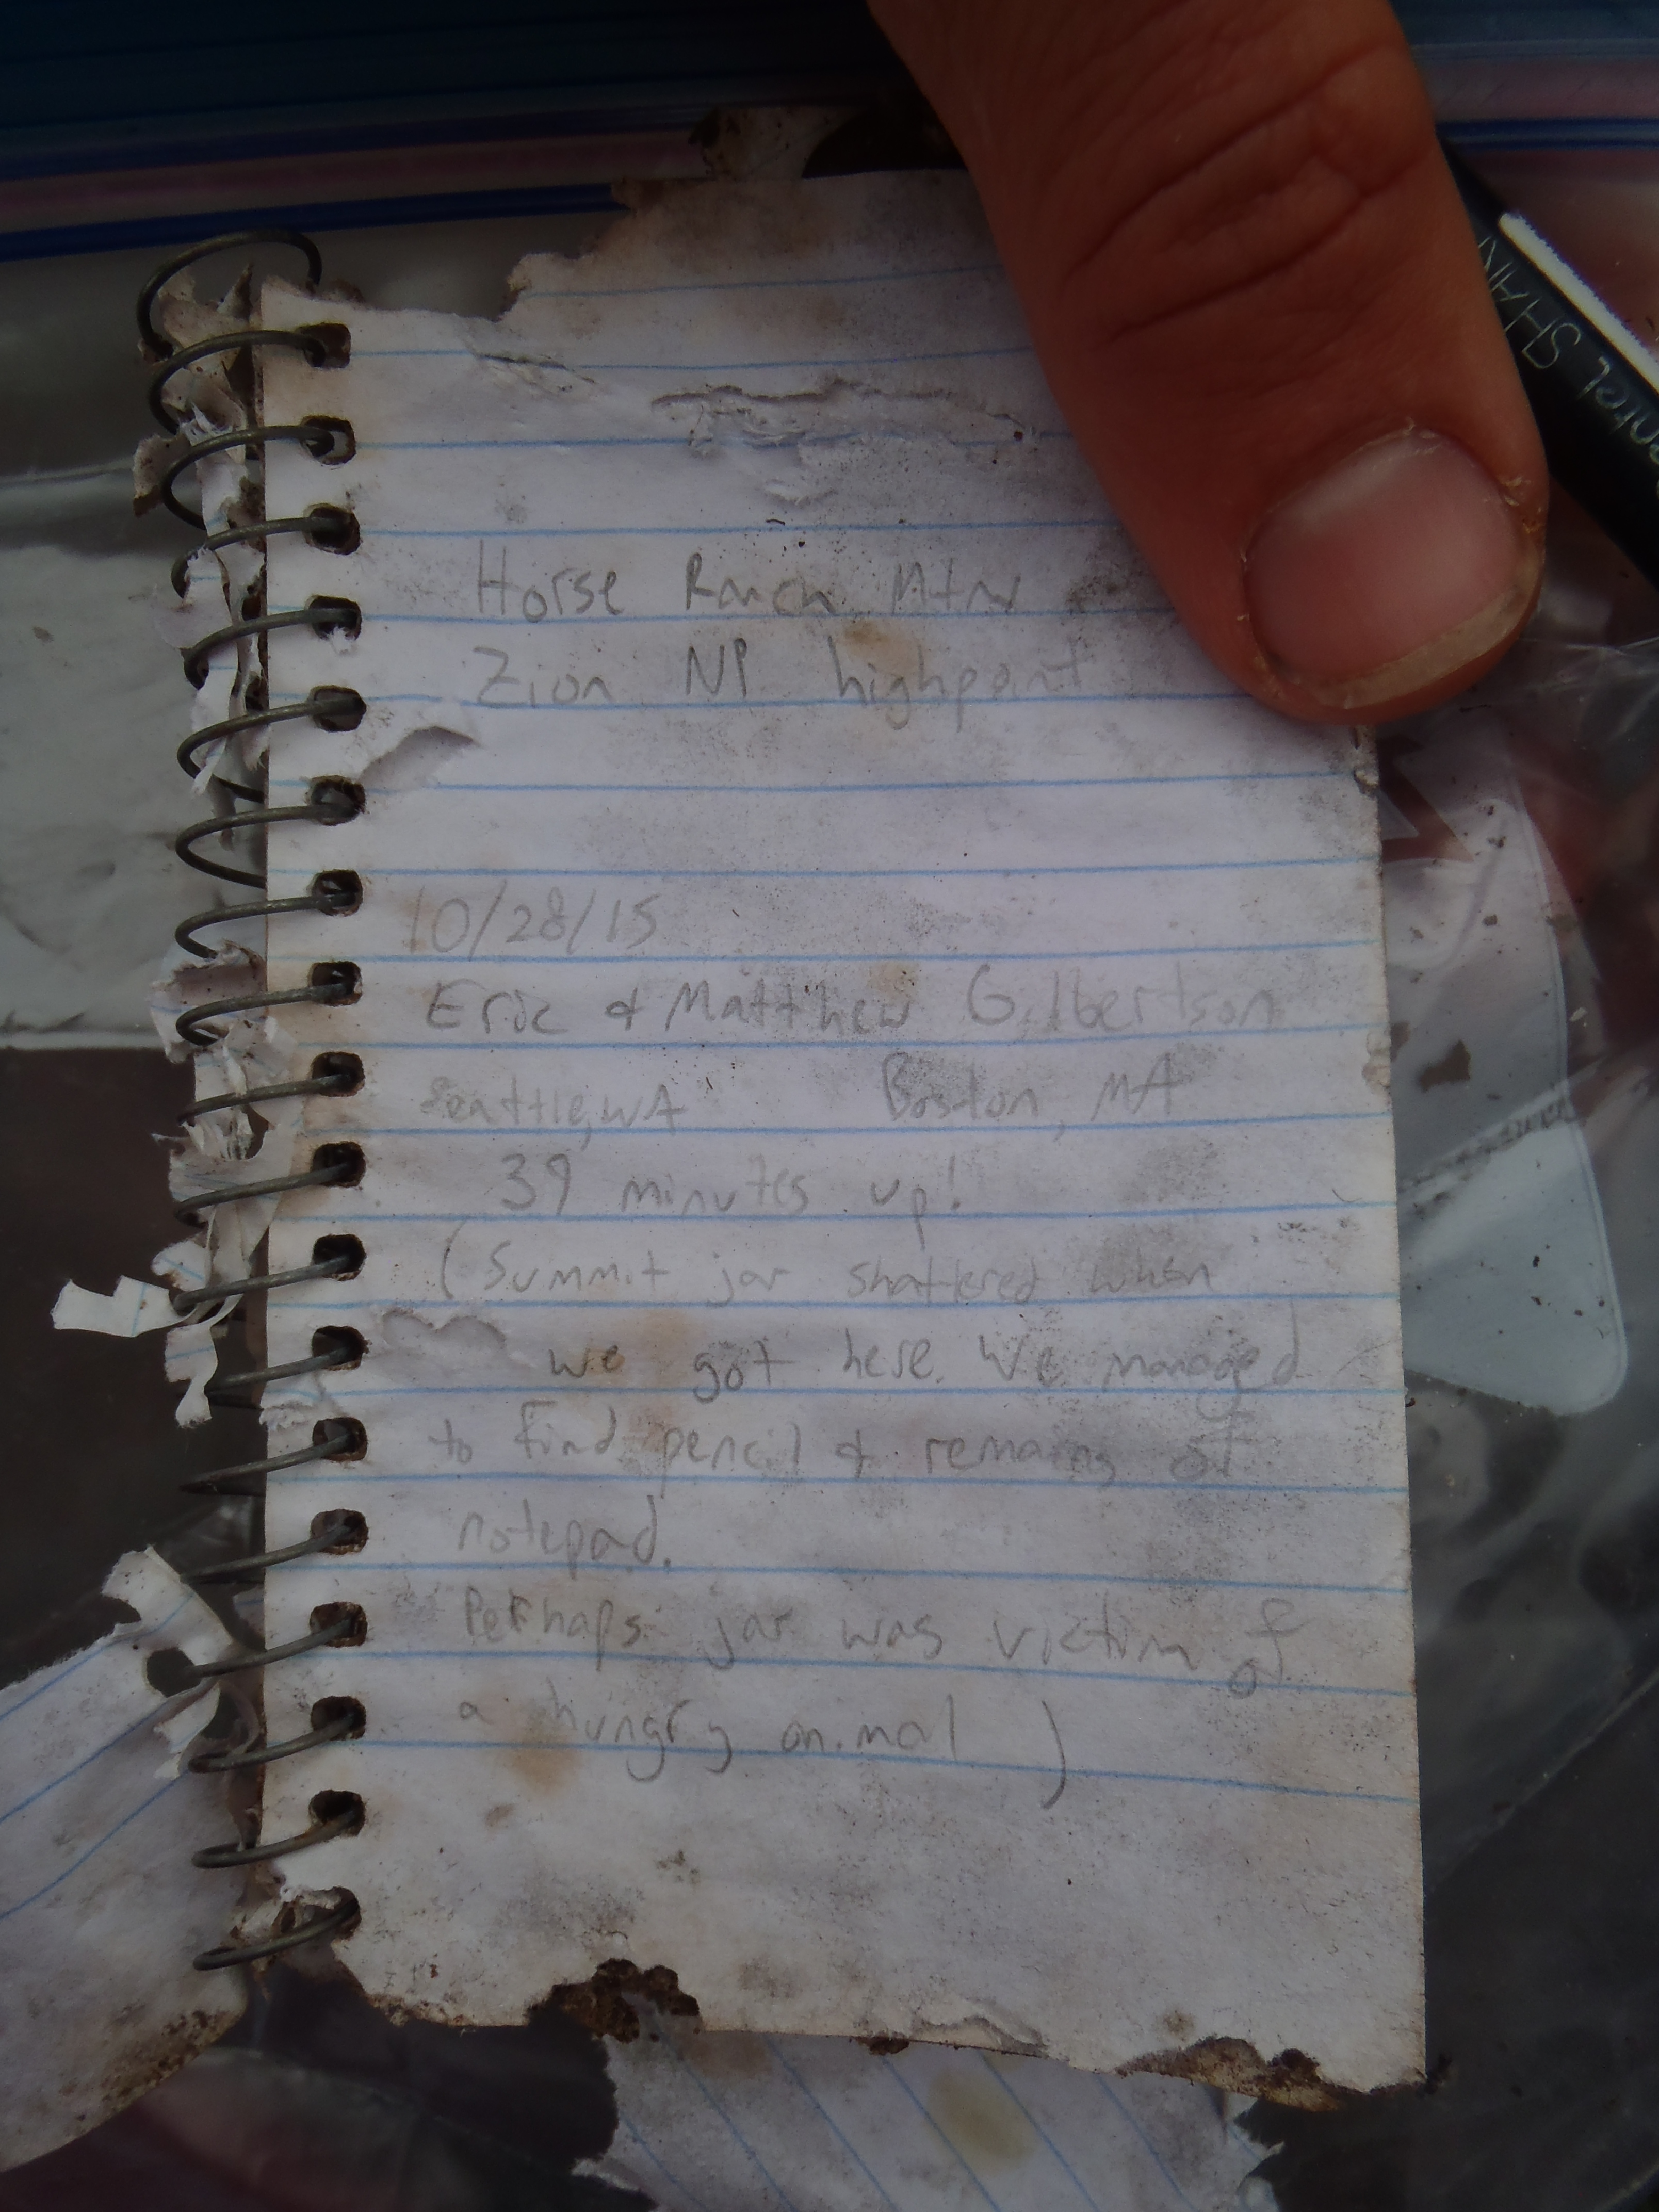 Horse Ranch Mtn
Zion NP highpoint
10/28/15
Eric & Matthew Gilbertson
Seattle, WA Boston, MA
39 minutes up!
(Summit jar shattered when
we got here. We managed
to find pencil & remains of
notepad.
Perhaps jar was victim of
a hungry animal)